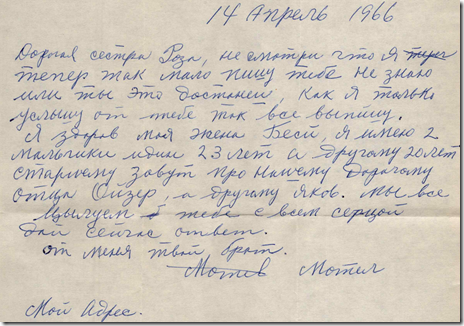 14 Апрель 1966
Дорогая сестра Роза, не смотри что я
тепер так мало пишу тебе не знаю
или ты это достанеш, как я только
услышу от тебе так все выпишу.
Я здоров моя жена Бесй, я имею 2
мальчики идин 23 лет а другому 20 лет
старшему зовут про нашему Дорогому
отца Ойзер, а другому Яков. мы все
цылуем тебе с всем серцой
дай сейчас ответ.
от меня твой брат.
Мотев Мотел
Мой Адрес.